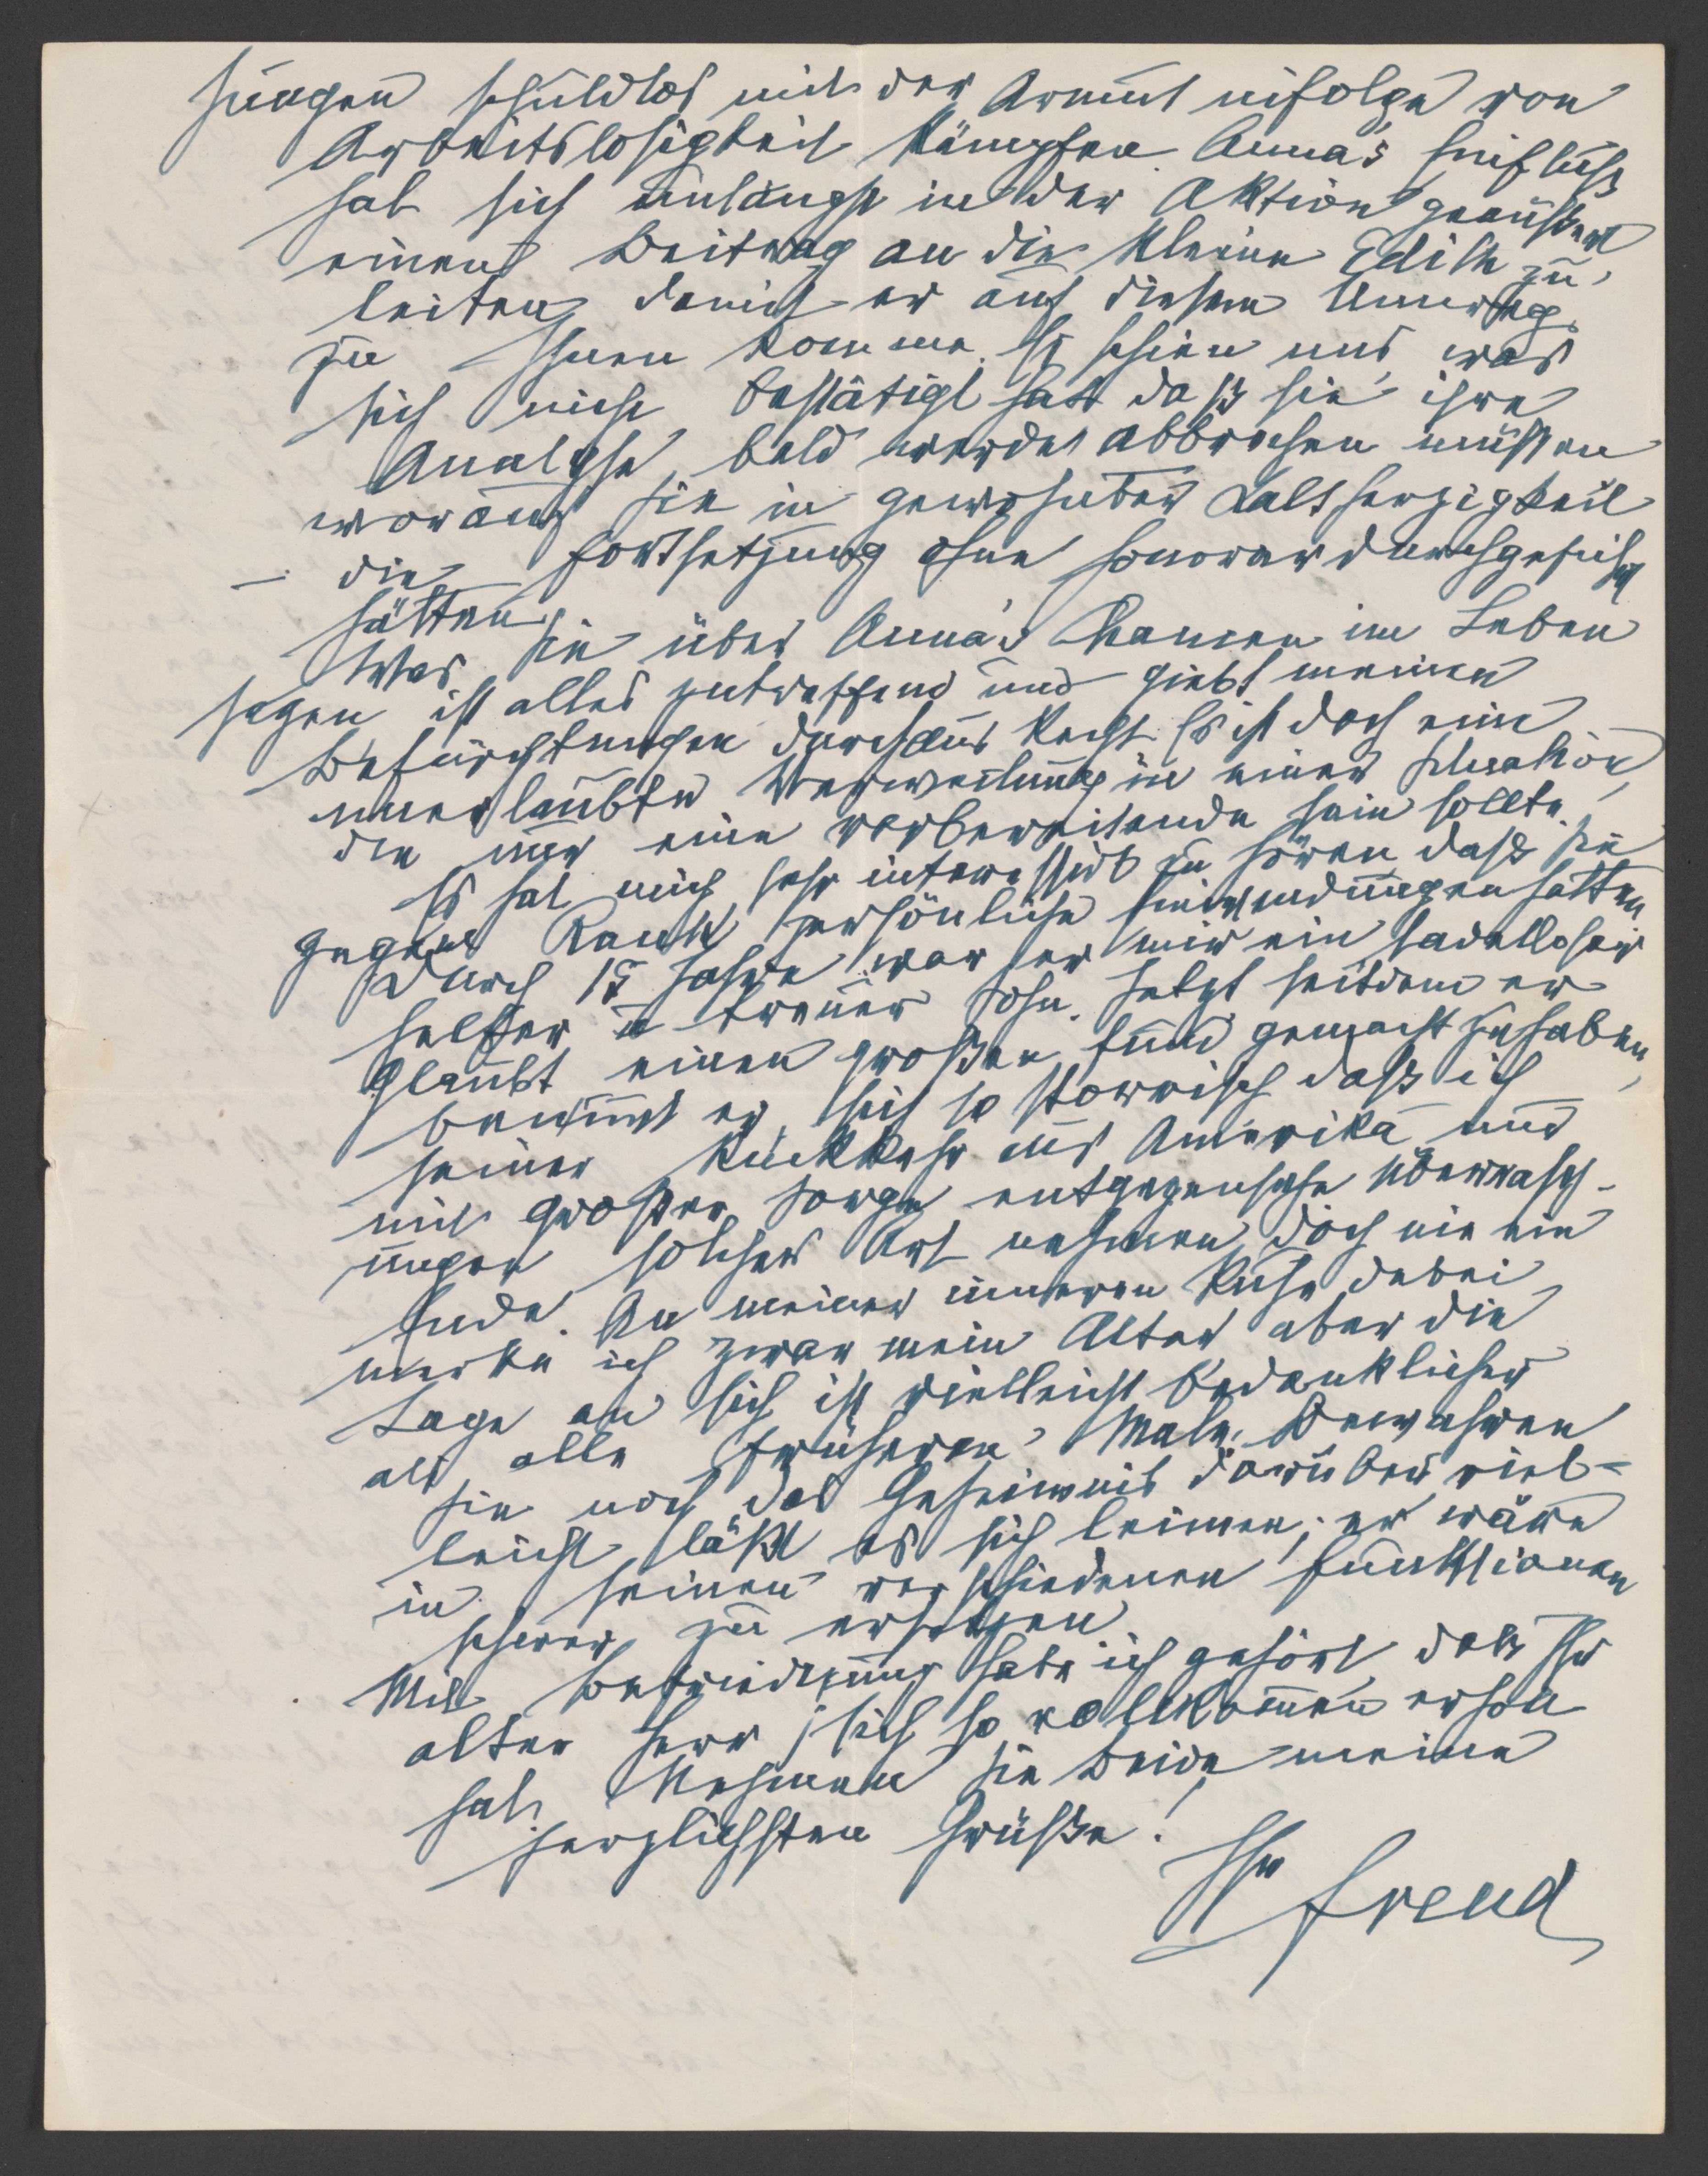 Jungen schuldlos mit der Armut infolge von
Arbeitslosigkeit kämpfen. Anna's Einfluß
hat sich unlängst in der Aktion geäußert
einen Beitrag an die kleine Edith zu
leiten damit er auf diesem Umweg
zu Ihnen komme. Es schien uns, was
sich nicht bestätigt hat daß sie ihre
Analyse bald werde abbrechen müssen
worauf Sie in gewohnter Kaltherzigkeit
– die Fortsetzung ohne Honorar durchgeführt
hätten.
Was Sie über Anna's Chancen im Leben
sagen ist alles zutreffend und giebt meinen
Befürchtungen durchaus Recht. Es ist doch eine
unerlaubte Verweilung in einer Situation,
die nur eine vorbereitende sein sollte.
Es hat mich sehr interessirt zu hören daß Sie
gegen Rank persönliche Einwendungen hatten
Durch 15 Jahre war er mir ein tadelloser
Helfer u treuer Sohn. Jetzt seitdem er
glaubt einen großen Fund gemacht zu haben,
benimmt er sich so störrisch daß ich
seiner Rückkehr aus Amerika nur
mit großer Sorge entgegensehe Überrasch-
ungen solcher Art nehmen doch nie ein
Ende. An meiner inneren Ruhe dabei
merke ich zwar mein Alter aber die
Lage an sich ist vielleicht bedenklicher
als alle früheren Male. Bewahren
Sie noch das Geheimnis darüber viel-
leicht läßt es sich leimen; er wäre
in seinen verschiedenen Funktionen
schwer zu ersetzen
Mit Befriedigung habe ich gehört daß Ihr
alter Herr sich so vollkommen erholt
hat. Nehmen Sie Beide meine
herzlichsten Grüße!
Ihr
Freud